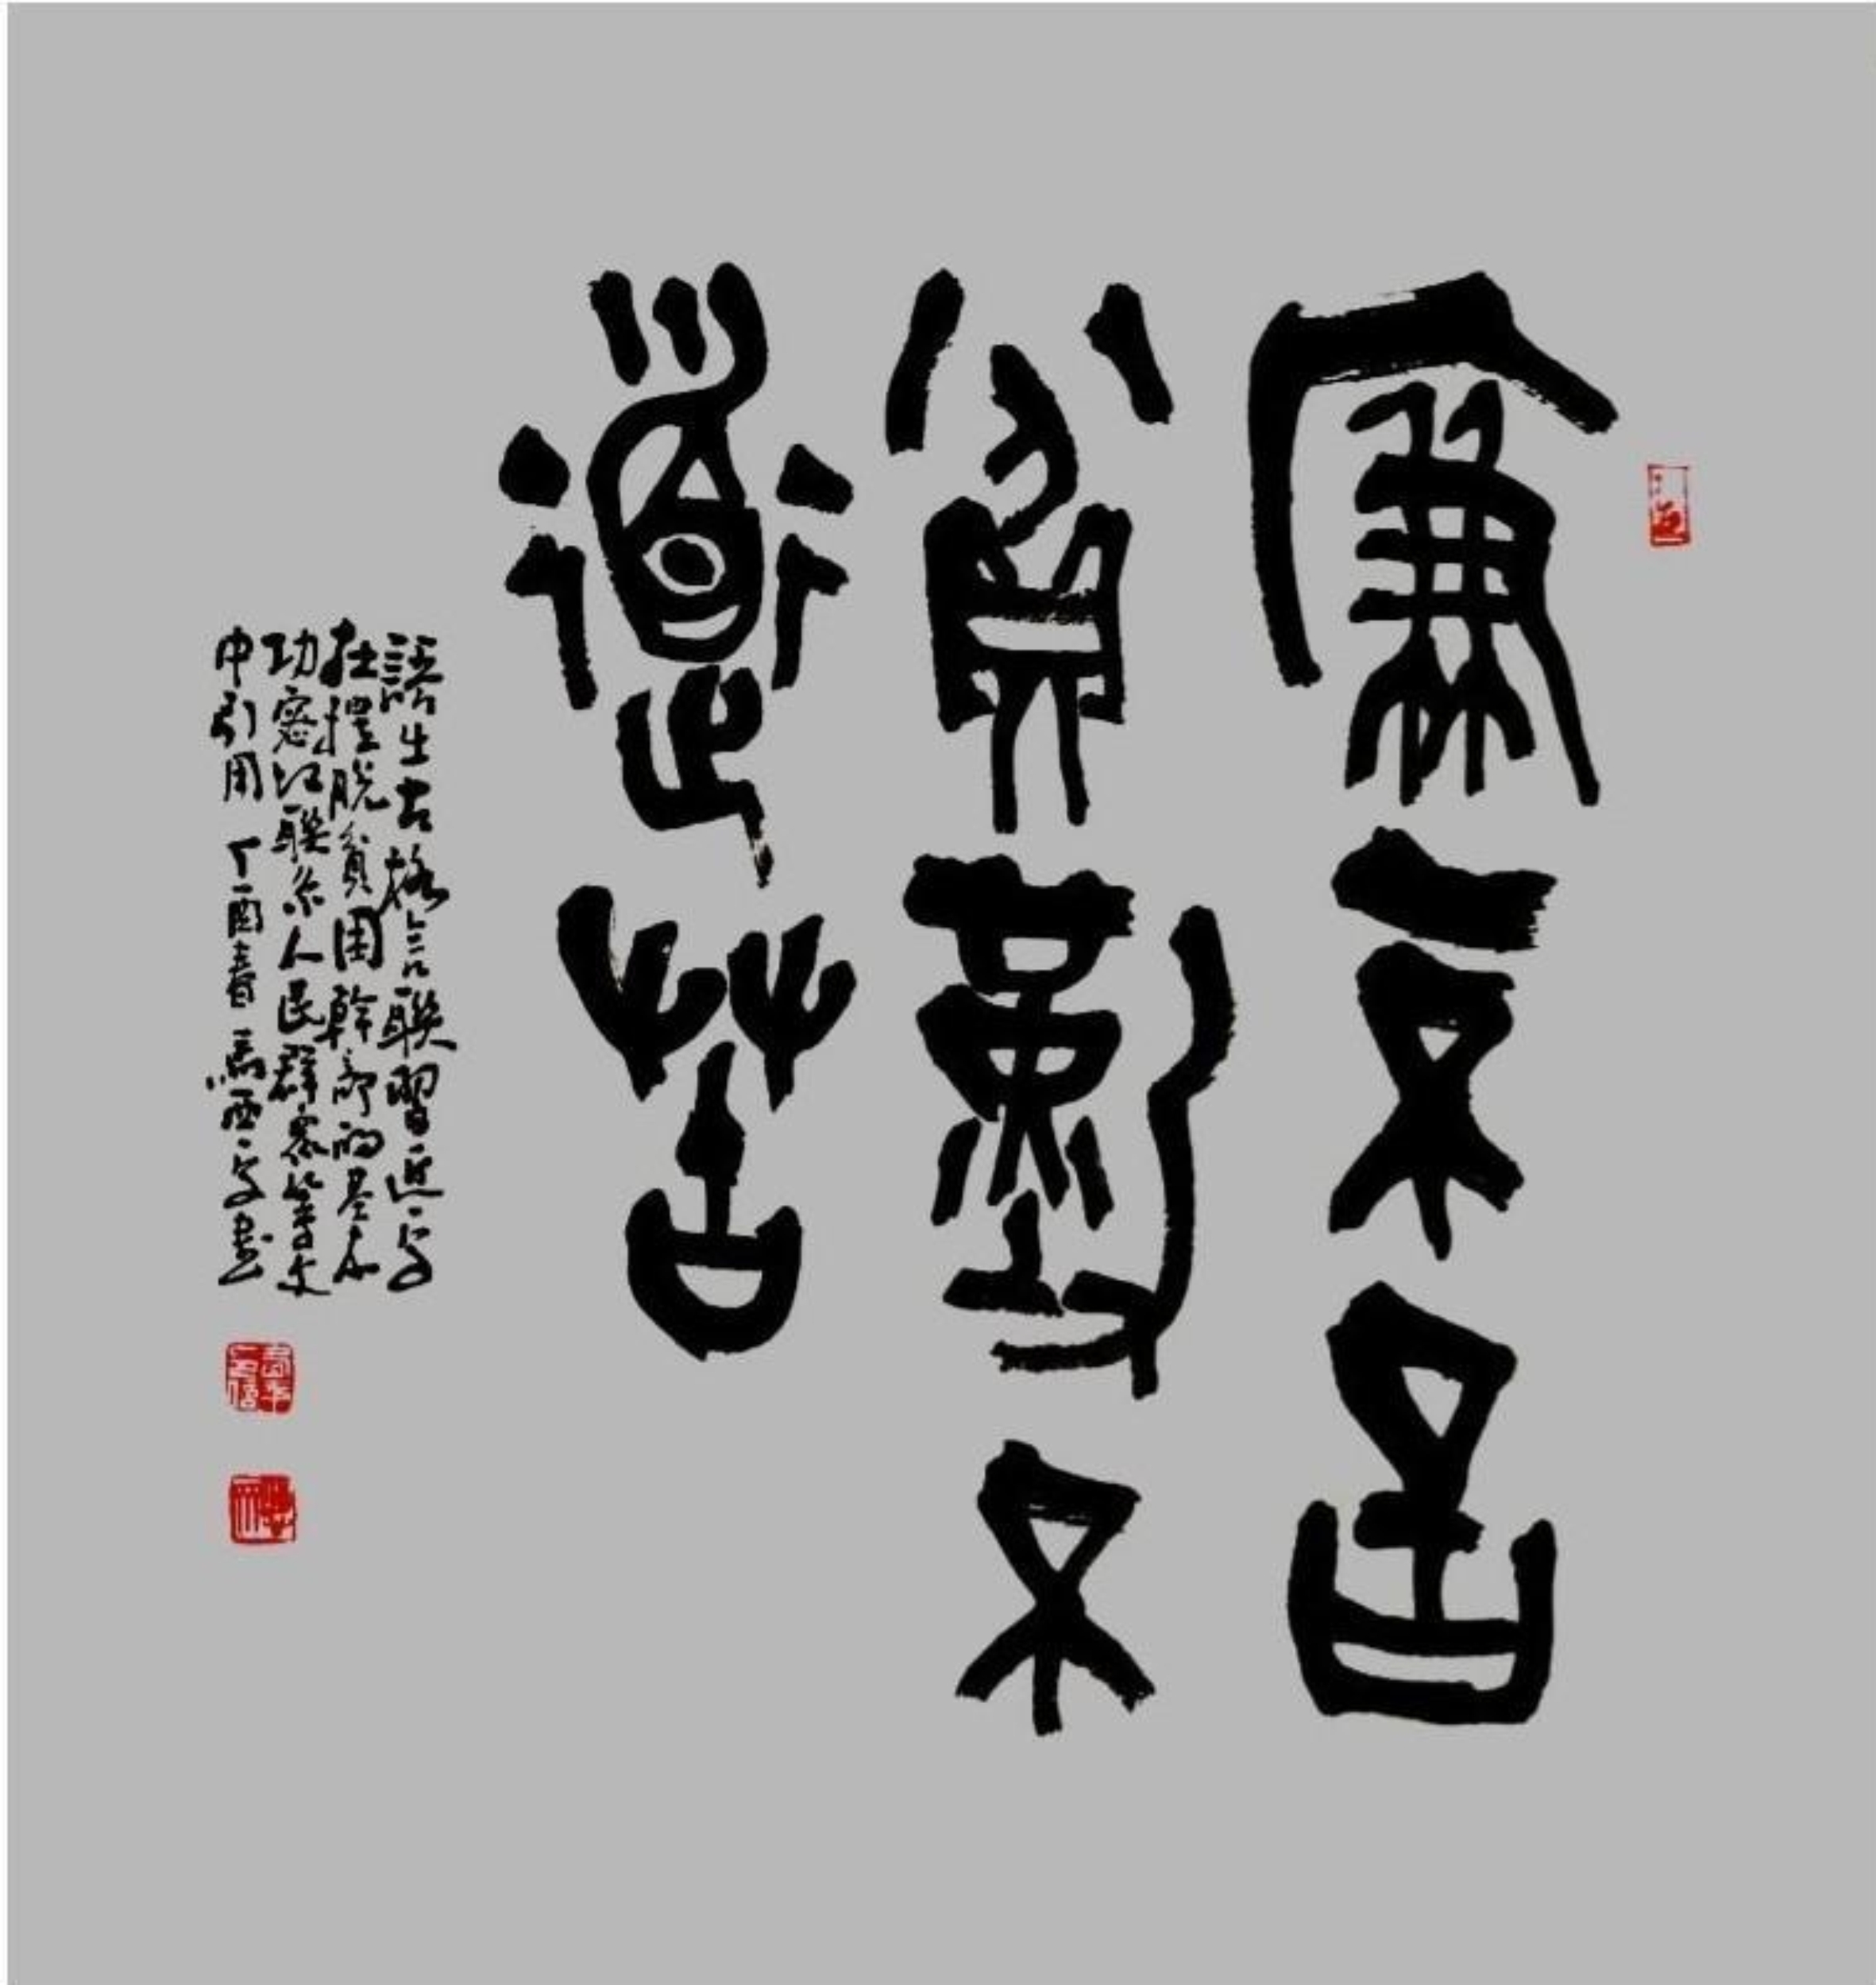 廉不言
貧勤不
道苦
語出古格言聯習近平
在擺脫貧困幹部的基本
功密切聯系人民群衆等文
中引用 丁酉春 馬西平書